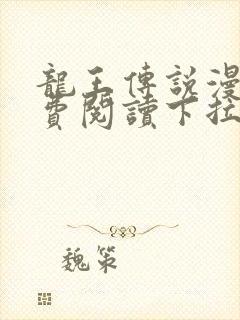 龍王傳說漫
費閱讀下拉
魏策